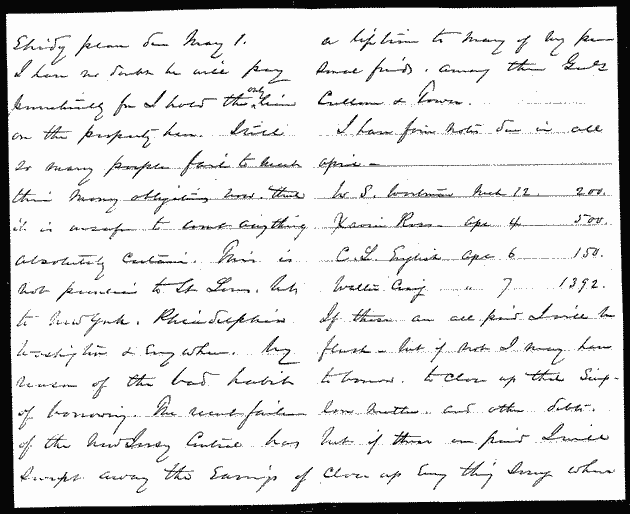 due May 1.
I have no doubt he will pay
punctually for I hold the only lien
on the property here. Still
so many people fail to meet
their money obligations now. that
it is unsafe to count anything
absolutely certain. This is
not peculiar to St Louis. but
to New York. Philadelphia
Washington & Every where. by
reason of the bad habit
of borrowing. The recent failure
of the New Jersey Central has
swept away the Earnings of
a life time to many of my per-
sonal friends. among them Genls
Cullum & Tower.
I have four notes due in all
april -
W. S. Mch 12. 200.
Xavier Ross - apl 4 500.
C. L. English apl 6 150.
Walter " 7 1392.
If these are all paid I will be
flush - but if not I may have
to borrow. to close up this Simp-
son matter. and other debts.
but if these are paid I will
close up Every thing Every where